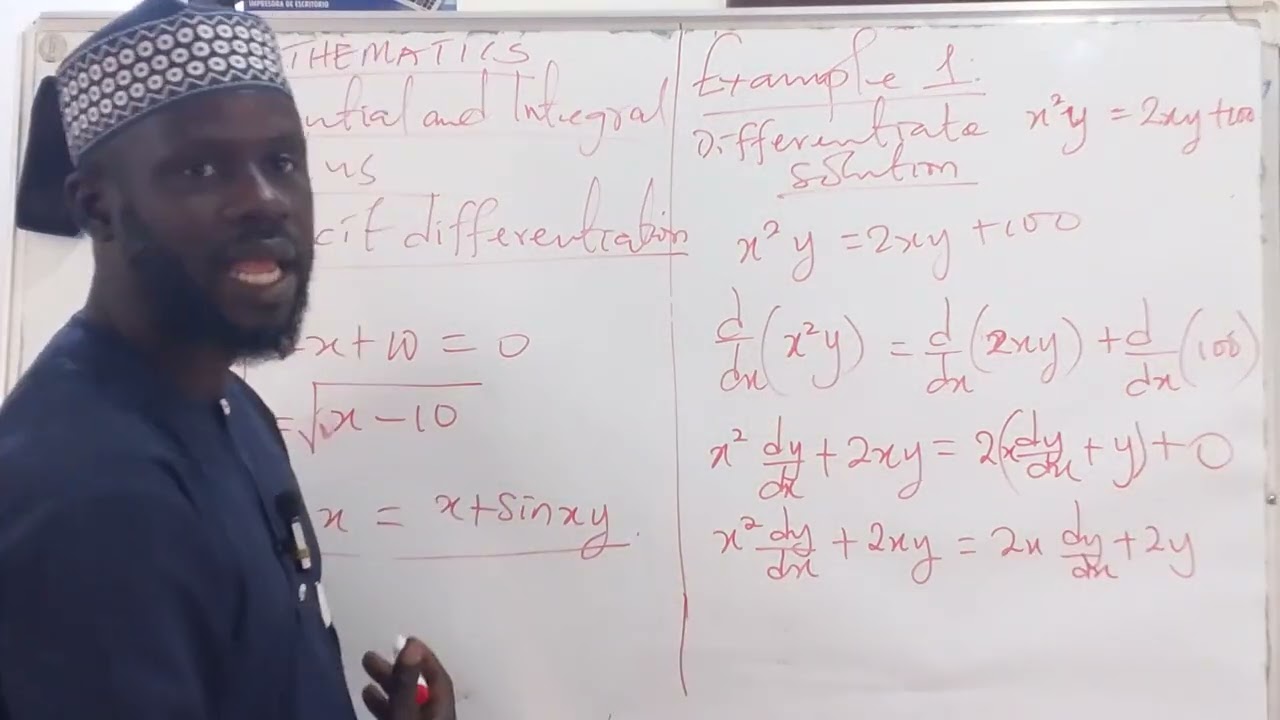 IMPRESORA DE ESCRITORIO
THEMATICS
ntial and Integral
us
cit differentiation
- x + 10 = 0
= √x - 10
x = x + sinxy
Example 1:
Differentiate x²y = 2xy + 100
solution
x²y = 2xy + 100
d/dx (x²y) = d/dx (2xy) + d/dx (100)
x² dy/dx + 2xy = 2(x dy/dx + y) + 0
x² dy/dx + 2xy = 2x dy/dx + 2y